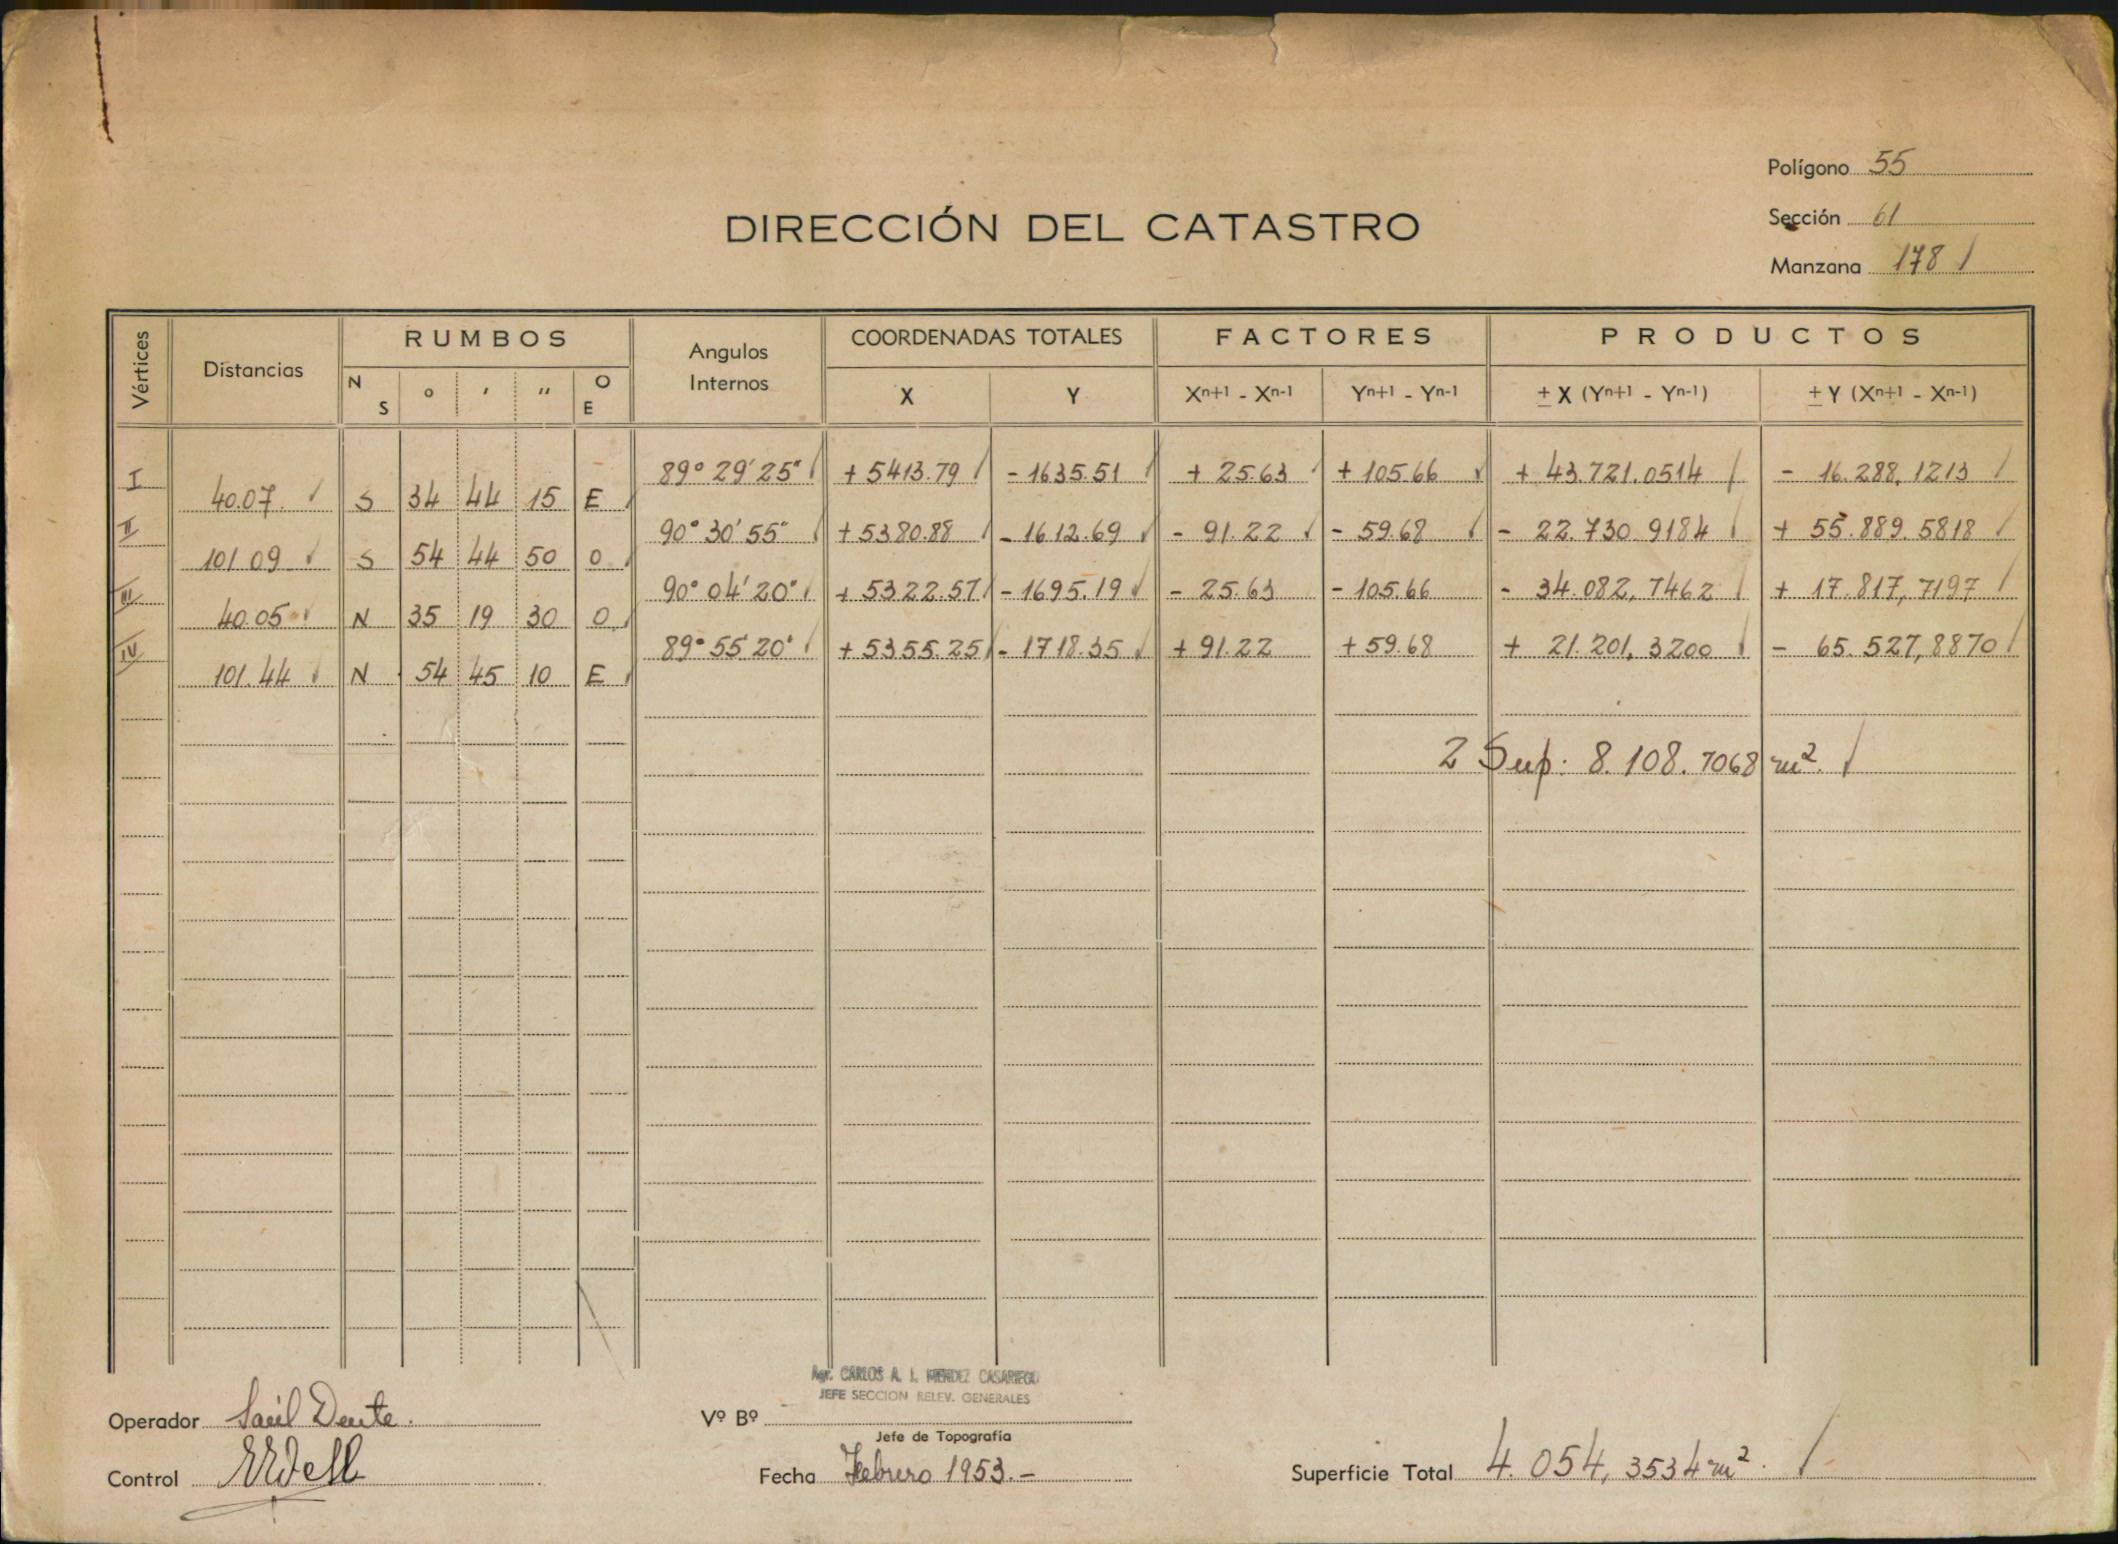 Polígono 55
DIRECCIÓN DEL CATASTRO
Sección 61
Manzana 178
Vértices Distancias RUMBOS Angulos Internos COORDENADAS TOTALES FACTORES PRODUCTOS
N S ° ′ ″ O E X Y Xn+1 - Xn-1 Yn+1 - Yn-1 ± X (Yn+1 - Yn-1) ± Y (Xn+1 - Xn-1)
I 89° 29′ 25″ + 5413.79 - 1635.51 + 25.63 + 105.66 + 43.721.0514 - 16.288,1213
40.07 S 34 44 15 E
II 90° 30′ 55″ + 5380.88 - 1612.69 - 91.22 - 59.68 - 22.730 9184 + 55.889.5818
101 09 S 54 44 50 O
III 90° 04′ 20″ + 5322.57 - 1695.19 - 25.63 - 105.66 - 34.082,7462 + 17.817,7197
40.05 N 35 19 30 O
IV 89° 55′ 20″ + 5355.25 - 1718.35 + 91.22 + 59.68 + 21.201,3200 - 65.527,8870
101.44 N 54 45 10 E
2 Sup: 8.108.7068 m².
Agr. CARLOS A. I. MENDEZ CASARIEGO
JEFE SECCION RELEV. GENERALES
Operador Saúl Dente.
Vº Bº
Jefe de Topografía
Control
Fecha Febrero 1953.-
Superficie Total 4.054,3534 m².